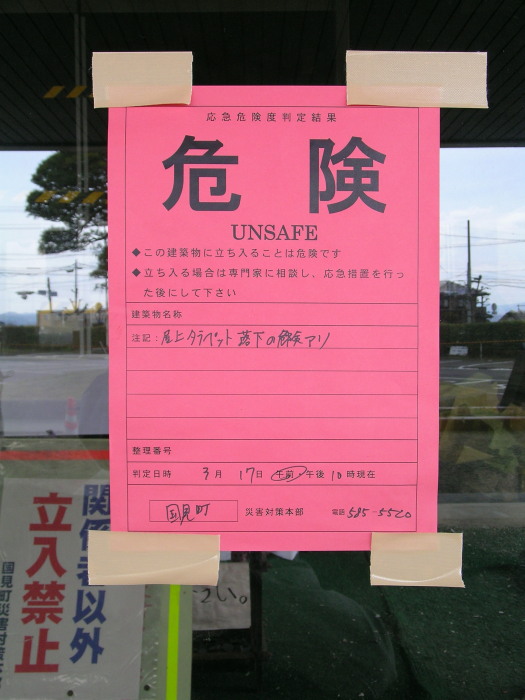 応急危険度判定結果
危険
UNSAFE
◆この建築物に立ち入ることは危険です
◆立ち入る場合は専門家に相談し、応急措置を行っ
た後にして下さい
建築物名称
注記：屋上タラペット落下の危険アリ
整理番号
判定日時 3月17日 午前・午後10時現在
国見町 災害対策本部 電話 585-5520
関係者以外
立入禁止
国見町災害対策本
さい。